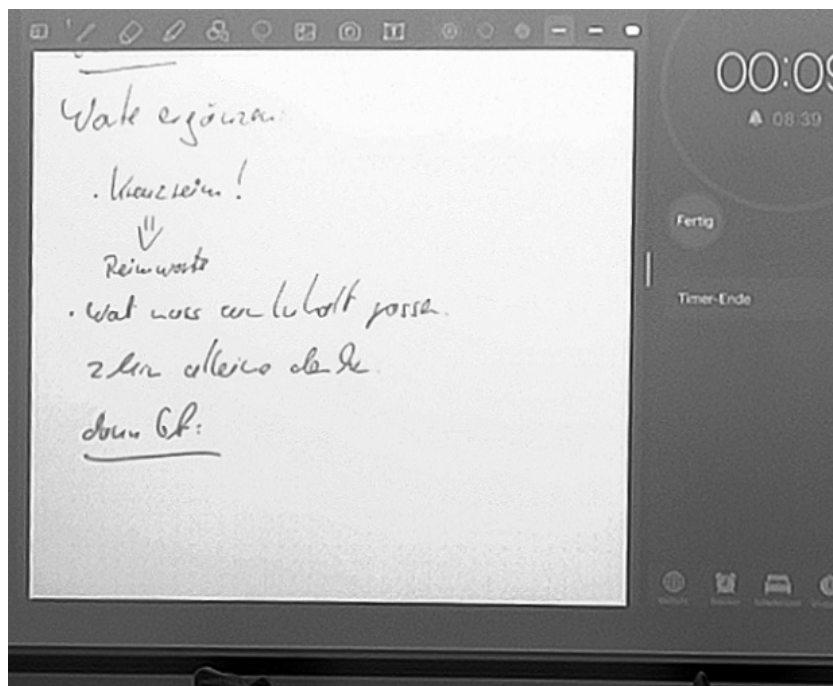 Worte ergänzen:
· Kreuzreim!
⇓
Reimworte
· Wort muss zum Inhalt passen.
2 Min alleine
dann GA:
00:09
08:39
Fertig
Timer-Ende